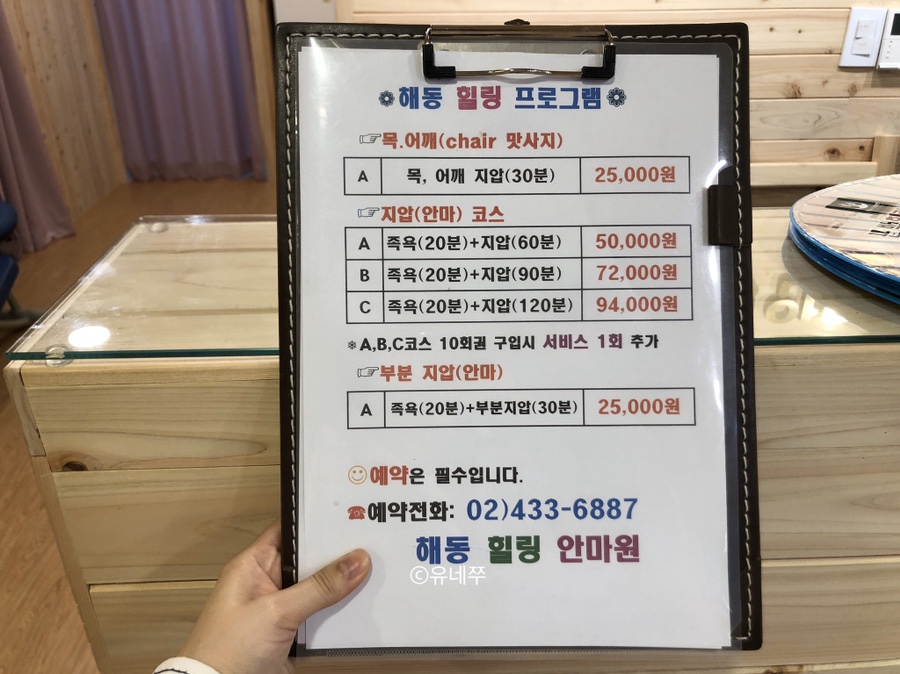 해동 힐링 프로그램
☞목.어깨(chair 맛사지)
A 목, 어깨 지압(30분) 25,000원
☞지압(안마) 코스
A 족욕(20분)+지압(60분) 50,000원
B 족욕(20분)+지압(90분) 72,000원
C 족욕(20분)+지압(120분) 94,000원
※A,B,C코스 10회권 구입시 서비스 1회 추가
☞부분 지압(안마)
A 족욕(20분)+부분지압(30분) 25,000원
☺예약은 필수입니다.
☎예약전화: 02)433-6887
해동 힐링 안마원
©유네쭈